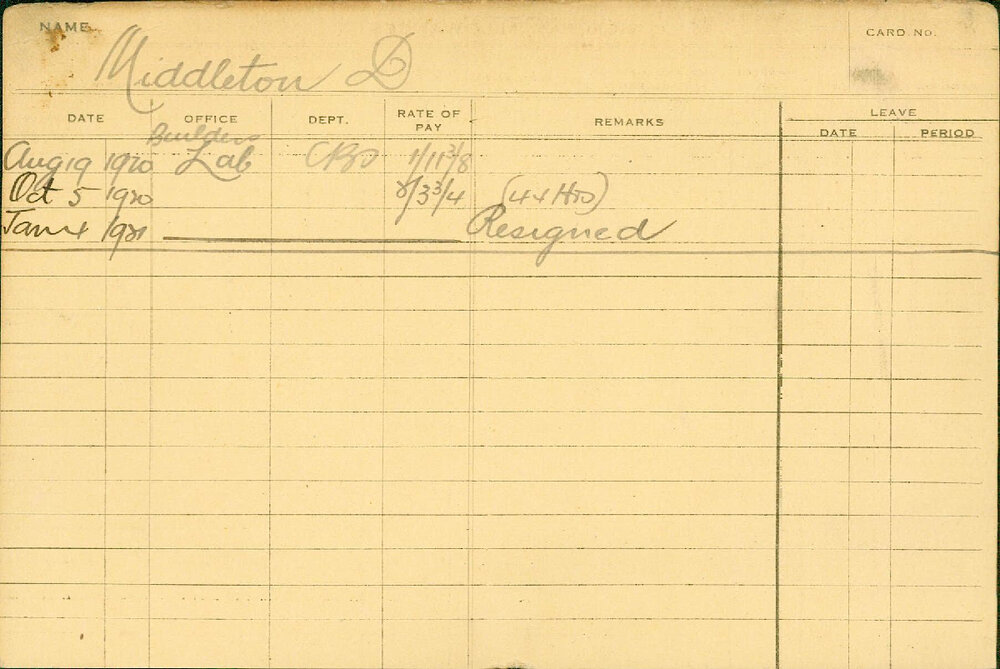 NAME
CARD NO.
Middleton D
DATE OFFICE DEPT. RATE OF PAY REMARKS LEAVE
DATE PERIOD
Builders
Aug 19 1920 Lab CBD 1/11 3/8
Oct 5 1920 2/3 3/4 (44 Hrs)
Jan 4 1921 Resigned